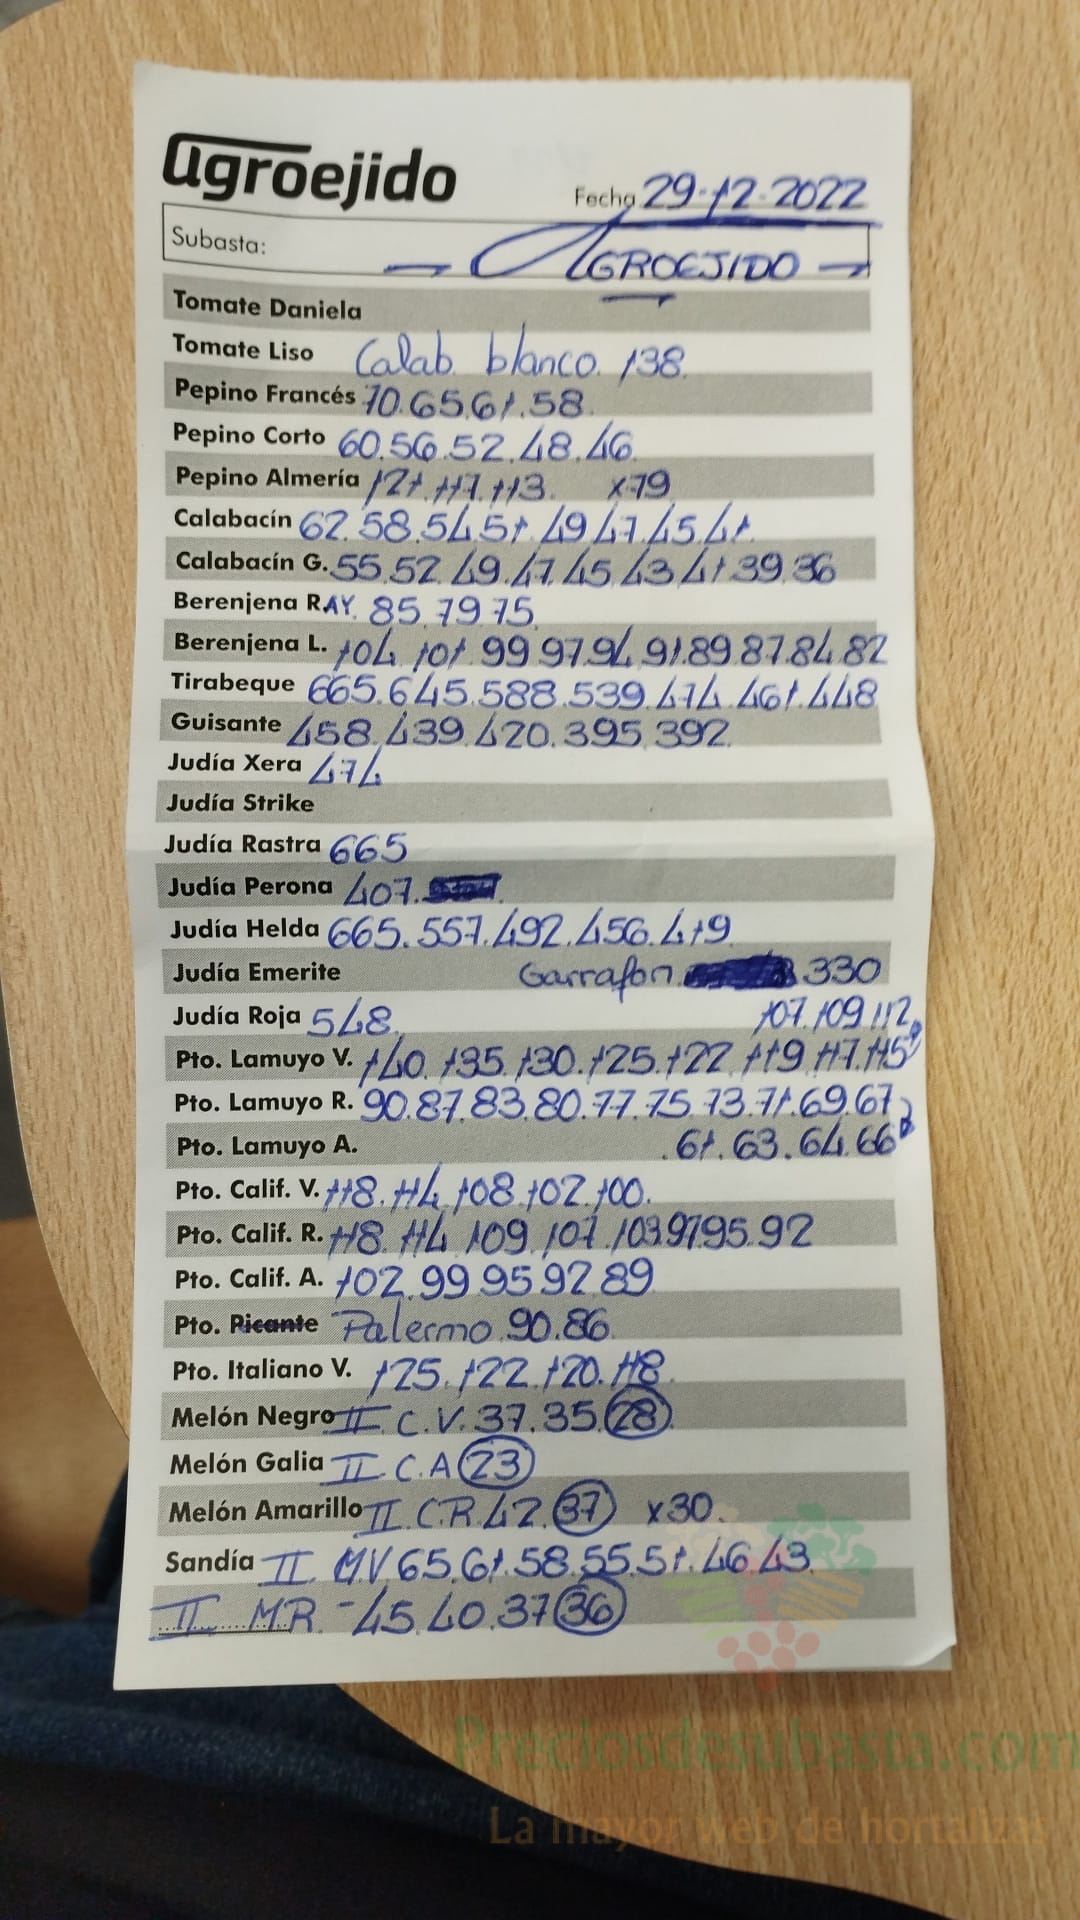 agroejido
Fecha 29-12-2022
Subasta: - AGROEJIDO -
Tomate Daniela
Tomate Liso Calab. blanco. 138.
Pepino Francés 70.65.61.58.
Pepino Corto 60.56.52.48.46.
Pepino Almería 121.117.113. x79
Calabacín 62.58.54.51.49.47.45.41.
Calabacín G. 55.52.49.47.45.43.41.39.36
Berenjena RAY. 85.79.75.
Berenjena L. 104.101.99.97.94.91.89.87.84.82
Tirabeque 665.645.588.539.474.461.448
Guisante 458.439.420.395.392.
Judía Xera 474
Judía Strike
Judía Rastra 665
Judía Perona 407.
Judía Helda 665.557.492.456.419
Judía Emerite Garrafon 330
Judía Roja 548. 107.109.112
Pto. Lamuyo V. 140.135.130.125.122.119.117.115
Pto. Lamuyo R. 90.87.83.80.77.75.73.71.69.67
Pto. Lamuyo A. .61.63.64.66
Pto. Calif. V. 118.114.108.102.100.
Pto. Calif. R. 118.114.109.107.103.97.95.92
Pto. Calif. A. 102.99.95.92.89
Pto. Picante Palermo.90.86.
Pto. Italiano V. 125.122.120.118.
Melón Negro II C.V.37.35.28.
Melón Galia II C.A 23
Melón Amarillo II.C.R.42.37 x30.
Sandía II MV 65.61.58.55.51.46.43.
II M.R. -45.40.37 36
Preciosdesubasta.com
La mayor web de hortalizas